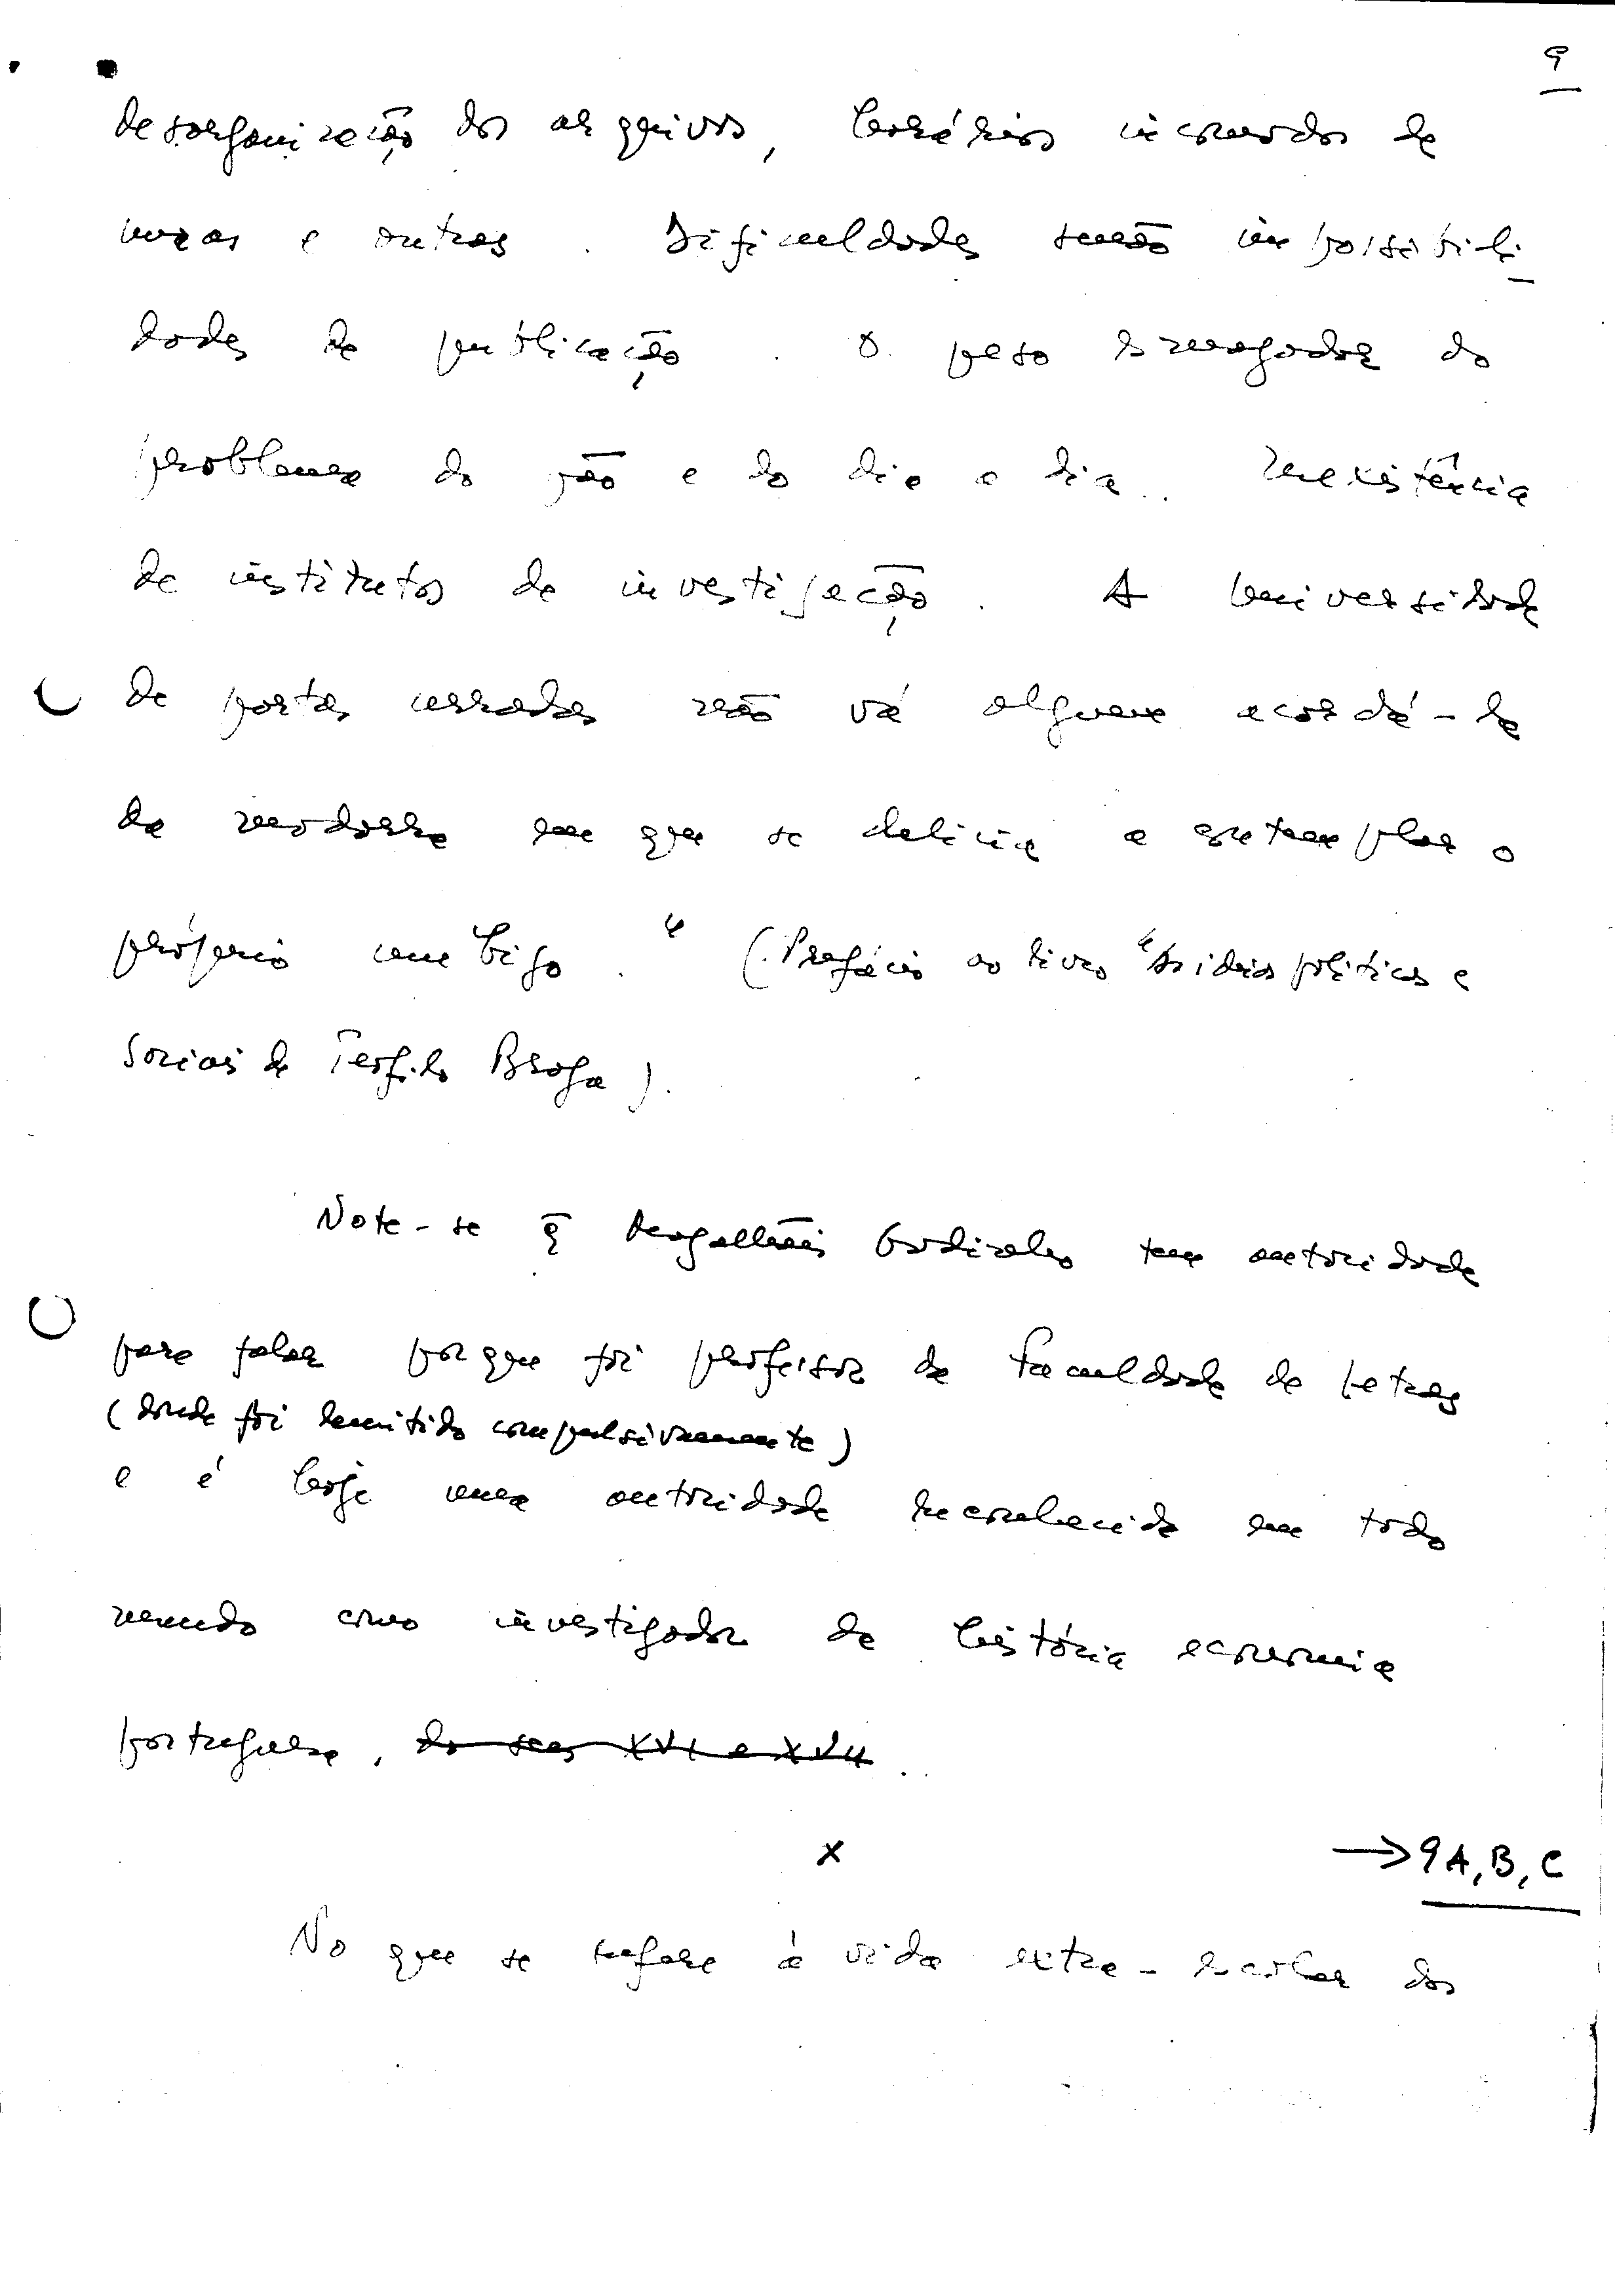 9
desorganização dos arquivos, horários incomodos de
umas e outras. Dificuldades senão impossibili
dades de publicação. O peso esmagador do
problema do pão e do dia a dia. Inexistência
de institutos de investigação. A Universidade
de portas cerradas não vá alguem acordá-la
da modorra em que se delicia a contemplar o
próprio umbigo." (Prefácio ao livro "As ideias politicas e
sociais de Teofilo Braga).
Note-se q̃ Magalhães Godinho tem autoridade
para falar porque foi professor da Faculdade de Letras
(donde foi demitido compulsivamente)
e é hoje uma autoridade reconhecida em todo
mundo como investigador da história economia
portuguesa, do sec XVI e XVII.
x
→ 9A, B, C
No que se refere à vida extra-escolar dos